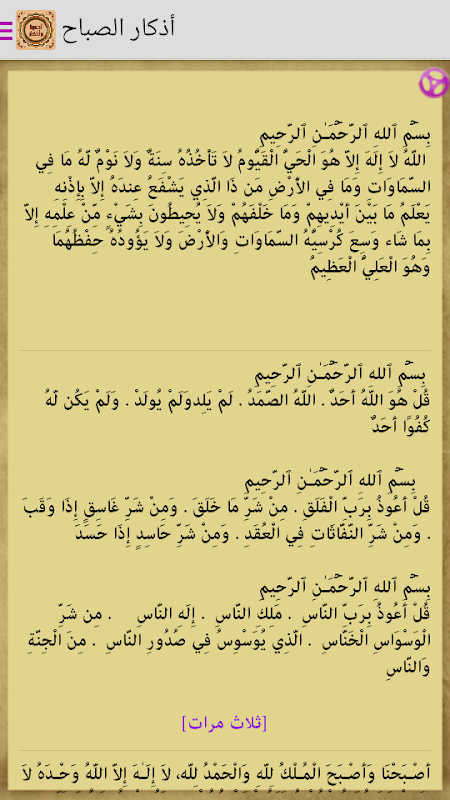 أذكار الصباح
بِسْمِ ٱللهِ ٱلرَّحْمَـٰنِ ٱلرَّحِيمِ
اللّهُ لاَ إِلَهَ إِلاَّ هُوَ الْحَيُّ الْقَيُّومُ لاَ تَأْخُذُهُ سِنَةٌ وَلاَ نَوْمٌ لَّهُ مَا فِي
السَّمَاوَاتِ وَمَا فِي الأَرْضِ مَن ذَا الَّذِي يَشْفَعُ عِنْدَهُ إِلاَّ بِإِذْنِهِ
يَعْلَمُ مَا بَيْنَ أَيْدِيهِمْ وَمَا خَلْفَهُمْ وَلاَ يُحِيطُونَ بِشَيْءٍ مِّنْ عِلْمِهِ إِلاَّ
بِمَا شَاء وَسِعَ كُرْسِيُّهُ السَّمَاوَاتِ وَالأَرْضَ وَلاَ يَؤُودُهُ حِفْظُهُمَا
وَهُوَ الْعَلِيُّ الْعَظِيمُ
بِسْمِ ٱللهِ ٱلرَّحْمَـٰنِ ٱلرَّحِيمِ
قُلْ هُوَ اللَّهُ أَحَدٌ . اللَّهُ الصَّمَدُ . لَمْ يَلِدوَلَمْ يُولَدْ . وَلَمْ يَكُن لَّهُ
كُفُوًا أَحَدٌ
بِسْمِ ٱللهِ ٱلرَّحْمَـٰنِ ٱلرَّحِيمِ
قُلْ أَعُوذُ بِرَبِّ الْفَلَقِ . مِنْ شَرِّ مَا خَلَقَ . وَمِنْ شَرِّ غَاسِقٍ إِذَا وَقَبَ
. وَمِنْ شَرِّ النَّفَّاثَاتِ فِي الْعُقَدِ . وَمِنْ شَرِّ حَاسِدٍ إِذَا حَسَدَ
بِسْمِ ٱللهِ ٱلرَّحْمَـٰنِ ٱلرَّحِيمِ
قُلْ أَعُوذُ بِرَبِّ النَّاسِ . مَلِكِ النَّاسِ . إِلَهِ النَّاسِ . مِن شَرِّ
الْوَسْوَاسِ الْخَنَّاسِ . الَّذِي يُوَسْوِسُ فِي صُدُورِ النَّاسِ . مِنَ الْجِنَّةِ
وَالنَّاسِ
[ثلاث مرات]
أَصْـبَحْنَا وَأَصْـبَحَ الْمُـلْكُ لِلَّهِ وَالْحَمْدُ لِلَّهِ، لاَ إِلَـهَ إِلاَّ اللَّهُ وَحْـدَهُ لاَ